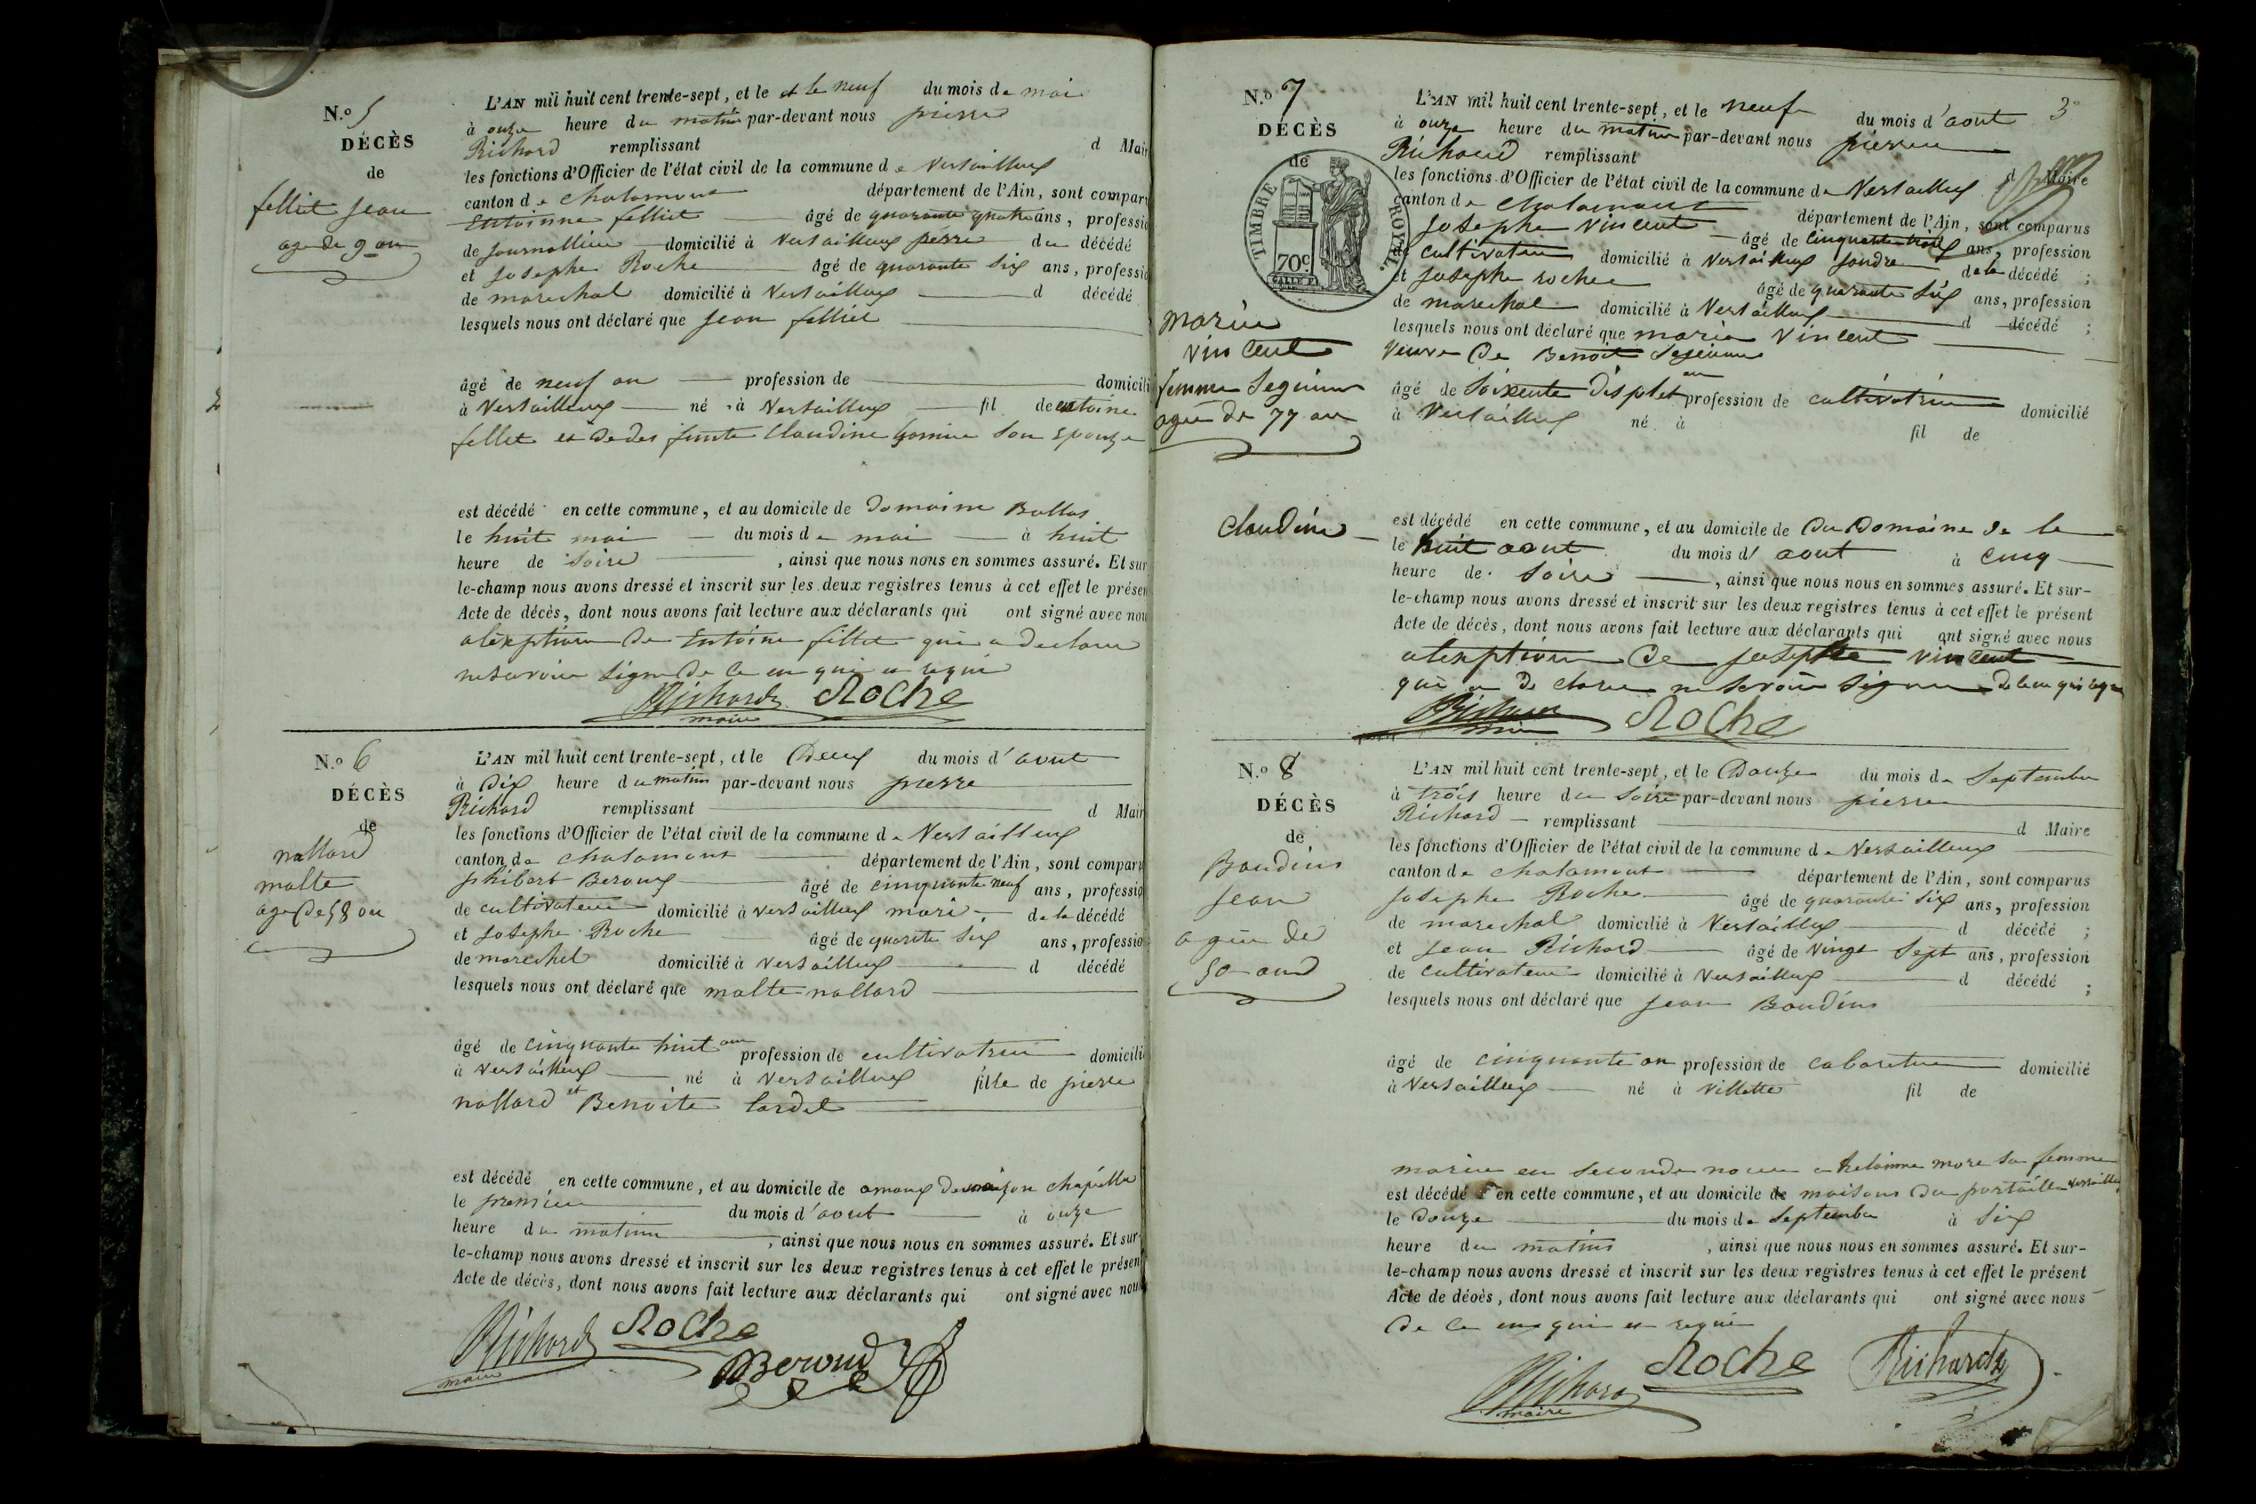 N.o 5
DÉCÈS
de
felliet jean
age de 9 an
L'AN mil huit cent trente-sept, et le et le neuf du mois de mai
à onze heure du matin par-devant nous pierre
Richard remplissant d Mair
les fonctions d'Officier de l'état civil de la commune de Versailleux
canton de chalamont département de l'Ain, sont compar
Entoinne felliet âgé de quarante quatre ans, professio
de journallier domicilié à Versailleux père du décédé
et josephe Roche âgé de quarante six ans, professio
de marechal domicilié à Versailleux d décédé
lesquels nous ont déclaré que jean felliet
âgé de neuf an profession de domicili
à Versailleux né à Versailleux fil de entoine
fellet et de defunte Claudine son epouze
est décédé en cette commune, et au domicile de domaine Ballas
le huite mai du mois de mai à huit
heure de soire, ainsi que nous nous en sommes assuré. Et sur
le-champ nous avons dressé et inscrit sur les deux registres tenus à cet effet le présen
Acte de décès, dont nous avons fait lecture aux déclarants qui ont signé avec nou
alexption de Entoine fillet qui a declare
ne savoir signe de ce en qui requi
Richard Roche
maire
N.o 6
DÉCÈS
de
nallard
malte
age de 58 an
L'AN mil huit cent trente-sept, et le Deux du mois d'aout
à dix heure du matin par-devant nous pierre
Richard remplissant d Mair
les fonctions d'Officier de l'état civil de la commune de Versailleux
canton de chalamont département de l'Ain, sont compar
phibert Beroux âgé de cinquante neuf ans, professio
de cultivateur domicilié à versailleux mari de la décédé
et josephe Roche âgé de quarite six ans, professio
de marechel domicilié à versailleux d décédé
lesquels nous ont déclaré que malte nallard
âgé de cinquante huit an profession de cultivatrice domicili
à versailleux né à Versailleux fille de pierre
nallard et Benoite Cardel
est décédé en cette commune, et au domicile de maizon chapelle
le premier du mois d'aout à onze
heure du matin, ainsi que nous nous en sommes assuré. Et sur
le-champ nous avons dressé et inscrit sur les deux registres tenus à cet effet le présen
Acte de décès, dont nous avons fait lecture aux déclarants qui ont signé avec nou
Richard Roche
maire Beroud
3
N.o 7
DÉCÈS
de
TIMBRE ROYAL
70c
marie
vincent
femme Seguinn
agée de 77 an
Claudine
L'AN mil huit cent trente-sept, et le neuf du mois d'aout
à onze heure du matin par-devant nous pierre
Richard remplissant d Maire
les fonctions d'Officier de l'état civil de la commune de Versailleux
canton de chalamont département de l'Ain, sont comparus
josephe Vincent âgé de cinquante trois ans, profession
de cultivateur domicilié à versailleux jandre de la décédé ;
et josephe roche âgé de quarante six ans, profession
de marechal domicilié à Versailleux d décédé ;
lesquels nous ont déclaré que maria Vincent
veuve de Benoit
âgé de soixente displet an profession de cultivatrice domicilié
à Versailleux né à fil de
est décédé en cette commune, et au domicile de du Domaine de la
le huit aout du mois d' aout à cinq
heure de soire, ainsi que nous nous en sommes assuré. Et sur-
le-champ nous avons dressé et inscrit sur les deux registres tenus à cet effet le présent
Acte de décès, dont nous avons fait lecture aux déclarants qui ont signé avec nous
alexption de josephe vincent
qui a de clare ne savoir signe de ce en qui requi
Richard Roche
N.o 8
DÉCÈS
de
Baudins
jean
agée de
50 and
L'AN mil huit cent trente-sept, et le Douze du mois de Septembre
à trois heure du soire par-devant nous pierre
Richard remplissant d Maire
les fonctions d'Officier de l'état civil de la commune de Versailleux
canton de chalamont département de l'Ain, sont comparus
josephe Roche âgé de quarante six ans, profession
de marechal domicilié à Versailleux d décédé ;
et jean Richard âgé de vingt sept ans, profession
de cultivateur domicilié à versailleux d décédé ;
lesquels nous ont déclaré que jean Baudins
âgé de cinquante an profession de cabaretier domicilié
à versailleux né à villette fil de
marie en seconde noce a more sa femme
est décédé en cette commune, et au domicile de maisons du portaille versailleux
le douze du mois de septembre à six
heure du matins, ainsi que nous nous en sommes assuré. Et sur-
le-champ nous avons dressé et inscrit sur les deux registres tenus à cet effet le présent
Acte de décès, dont nous avons fait lecture aux déclarants qui ont signé avec nous
de ce en qui requi
Richard Roche Richard
maire